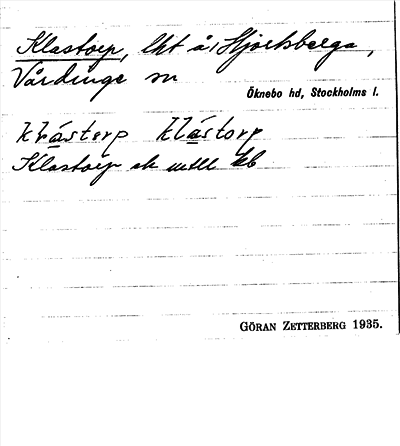 Klastorp, lht å Hjortsberga,
Vårdinge sn
Öknebo hd, Stockholms l.
krástorp klástorp
Klastorp ek uttl kb
GÖRAN ZETTERBERG 1935.